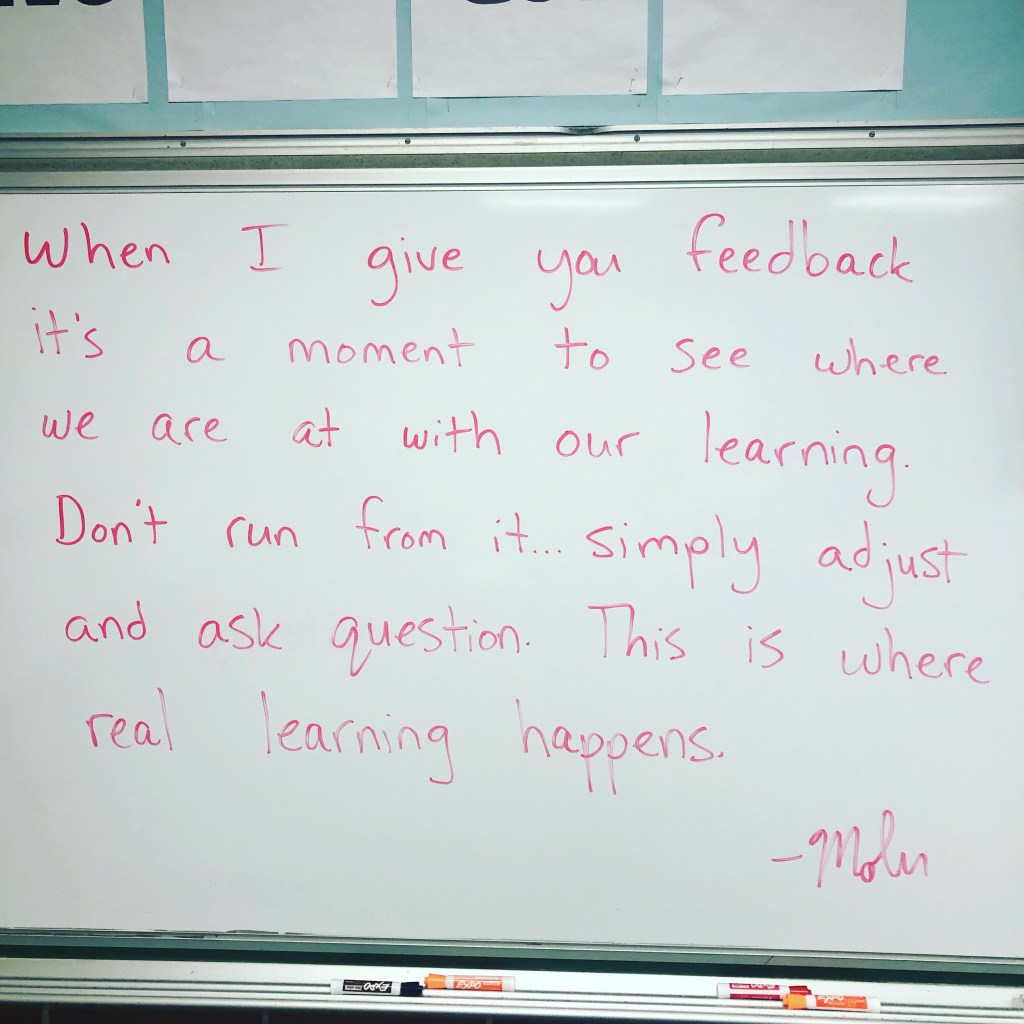 When I give you feedback
it's a moment to see where
we are at with our learning.
Don't run from it... simply adjust
and ask question. This is where
real learning happens.
EXPO
EXPO
EXPO
EXPO